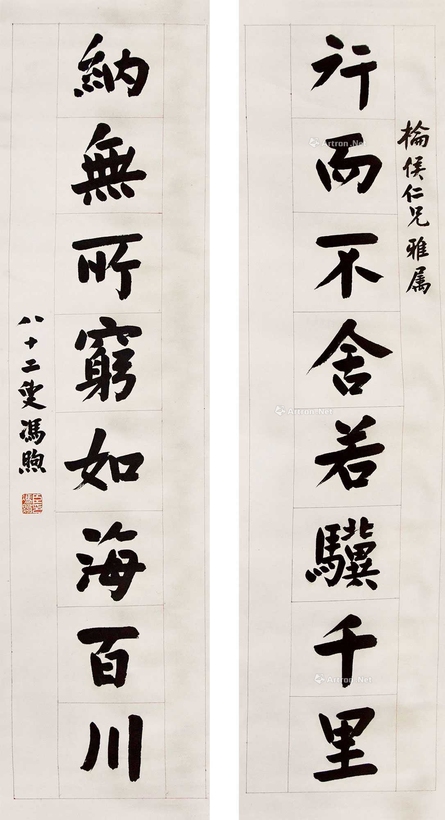 棆侯仁兄雅属
行而不舍若驥千里
納無所窮如海百川
八十二叟馮煦
Artron.Net
Artron.Net
Artron.Net